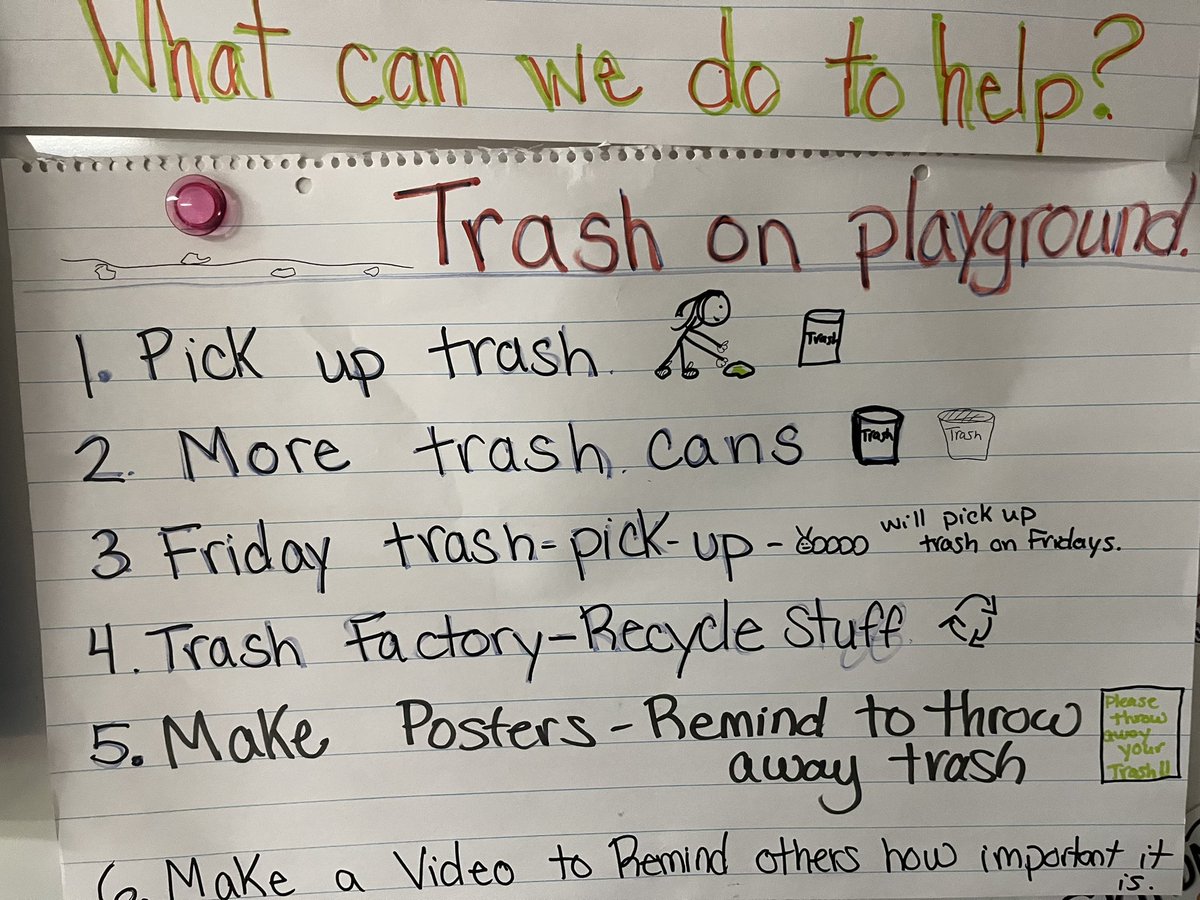 What can we do to help?
Trash on playground.
1. Pick up trash.
Trash
2. More trash cans
Trash
Trash
3 Friday trash-pick-up - will pick up
trash on Fridays.
4. Trash Factory-Recycle Stuff
5. Make Posters - Remind to throw
away trash
Please
throw
away
your
Trash!!
6. Make a Video to Remind others how important it
is.